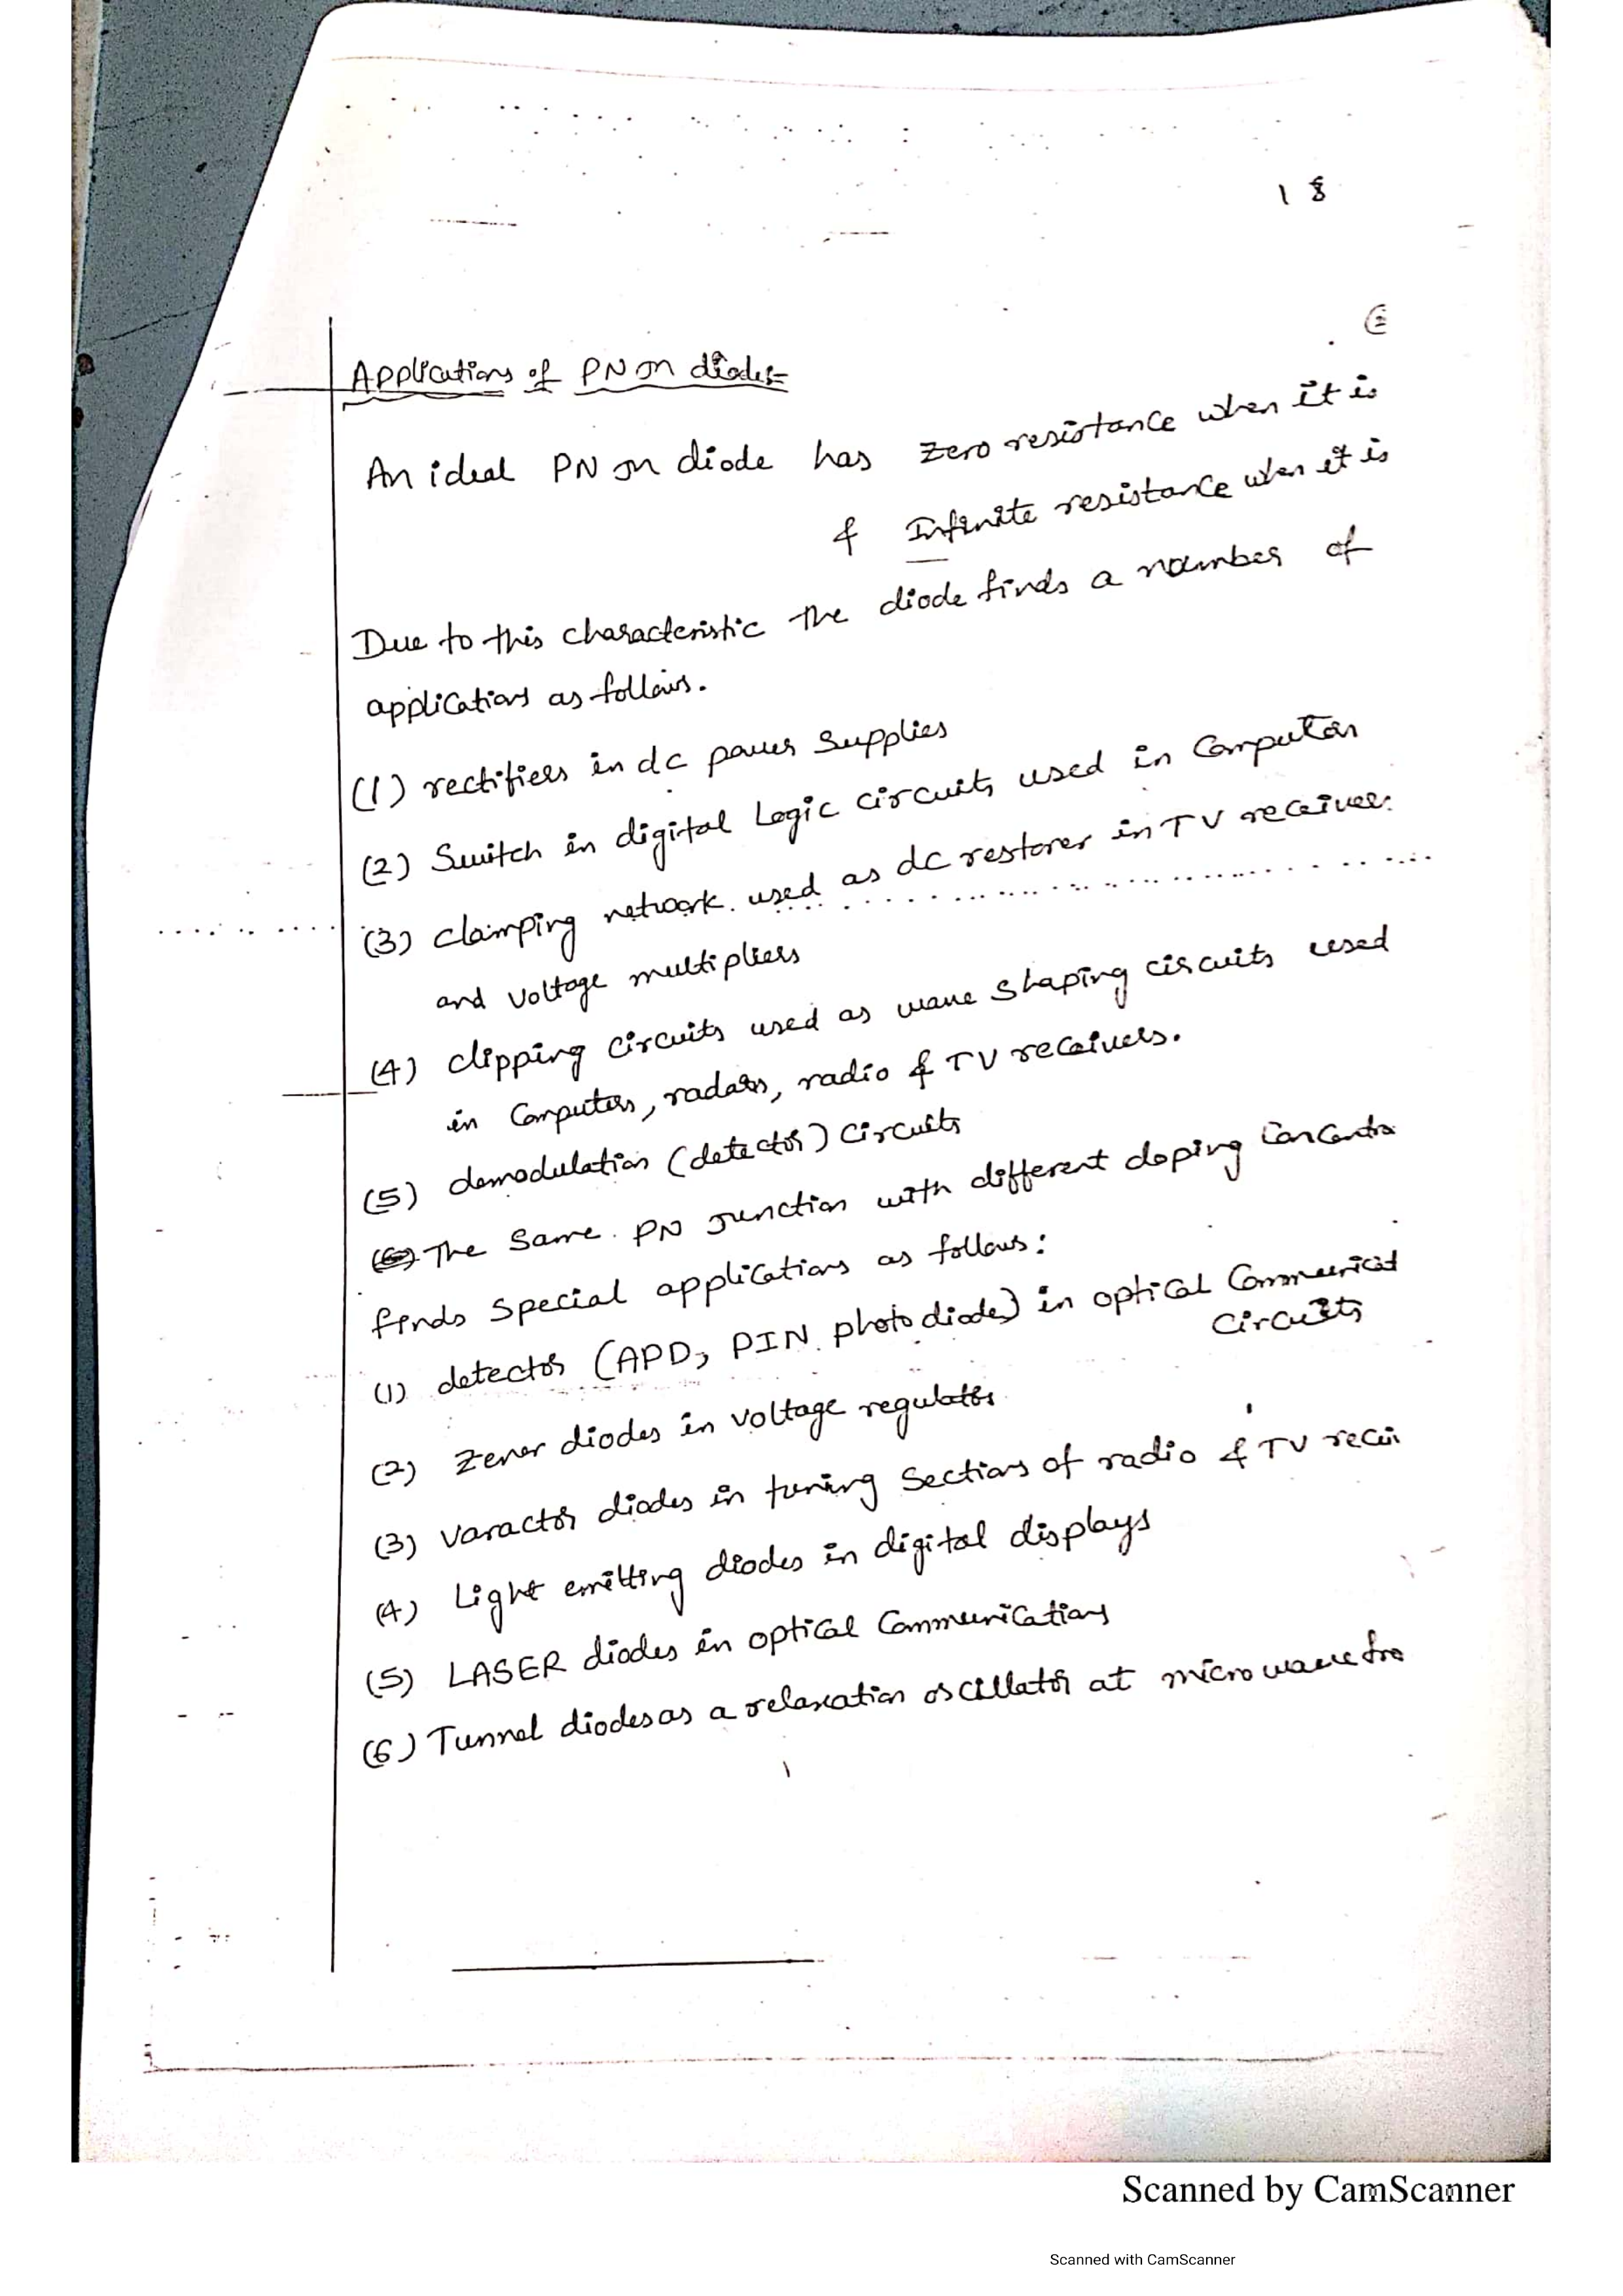 18
Applications of PN Jn diode:-
An ideal PN Jn diode has zero resistance when it is
& Infinite resistance when it is
Due to this characteristic the diode finds a number of
applications as follows.
(1) rectifiers in dc power supplies
(2) Switch in digital Logic circuits used in Computers
(3) clamping network used as dc restorer in TV receiver
and voltage multipliers
(4) clipping circuits used as wave shaping circuits used
in Computers, radars, radio & TV receivers.
(5) demodulation (detector) circuits
The Same PN Junction with different doping Concentra
finds special applications as follows:
(1) detector (APD, PIN photo diode) in optical Communicat
circuits
(2) Zener diodes in voltage regulators
(3) Varactor diodes in tuning sections of radio & TV recei
(4) Light emitting diodes in digital displays
(5) LASER diodes in optical Communications
(6) Tunnel diodes as a relaxation oscillator at microwave fre
Scanned by CamScanner
Scanned with CamScanner